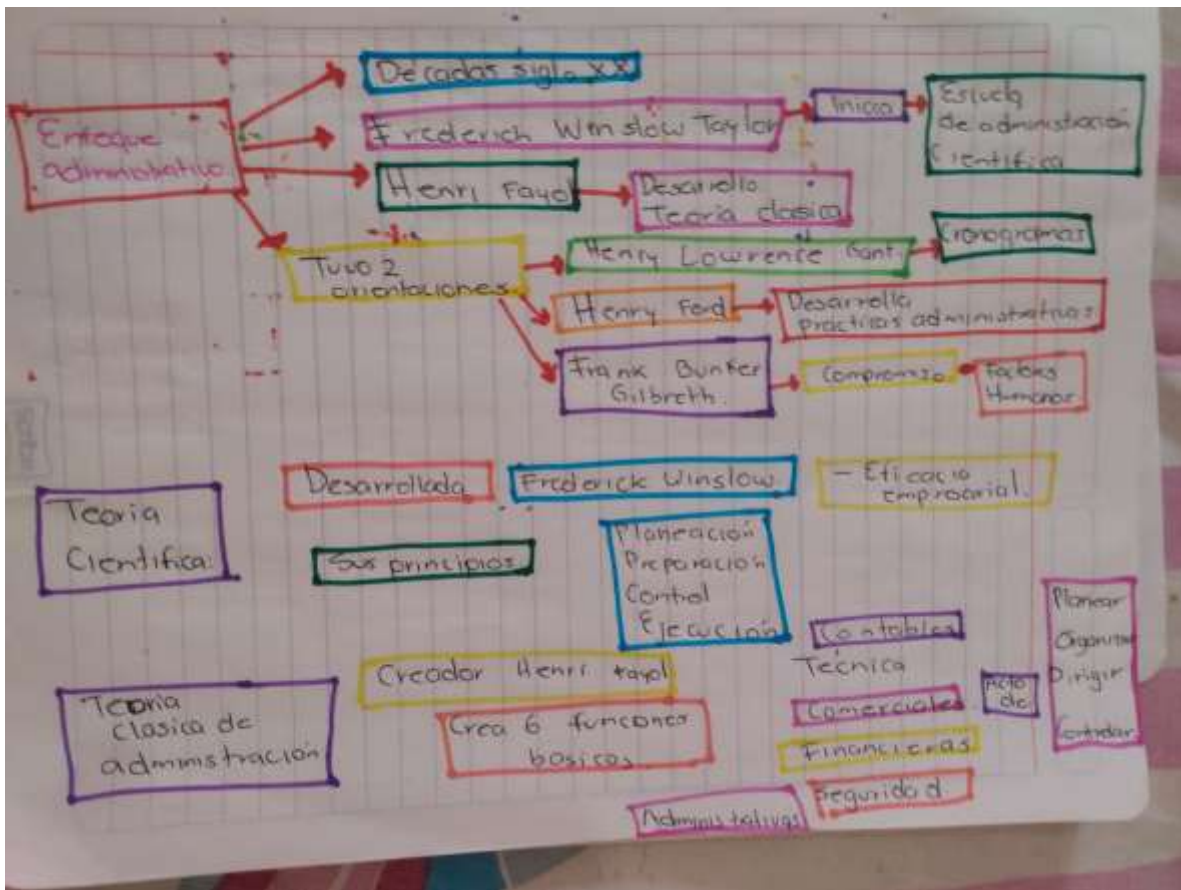 Enfoque
administrativo
Décadas siglo XX
Frederich Winslow Taylor
Inicio
Escuela
de administración
Cientifica
Henri Fayol
Desarrollo
Teoria clasica
Tuvo 2
orientaciones
Henry Lowrence Gant
Cronogramas
Henry Ford
Desarrollo
practicas administrativas
Frank Bunker
Gilbreth.
Compromiso
Factores
Humanos
Teoria
Cientifica:
Desarrollada
Frederick Winslow
- Eficacia
empresarial.
Sus principios
Planeación
Preparación
Control
Ejecución
Teoria
clasica de
administración
Creador Henri fayol
Crea 6 funciones
basicas
Contables
Técnica
Comerciales
Financieras
Seguridad
Administrativas
Acto
de
Planear
Organizar
Dirigir
Controlar